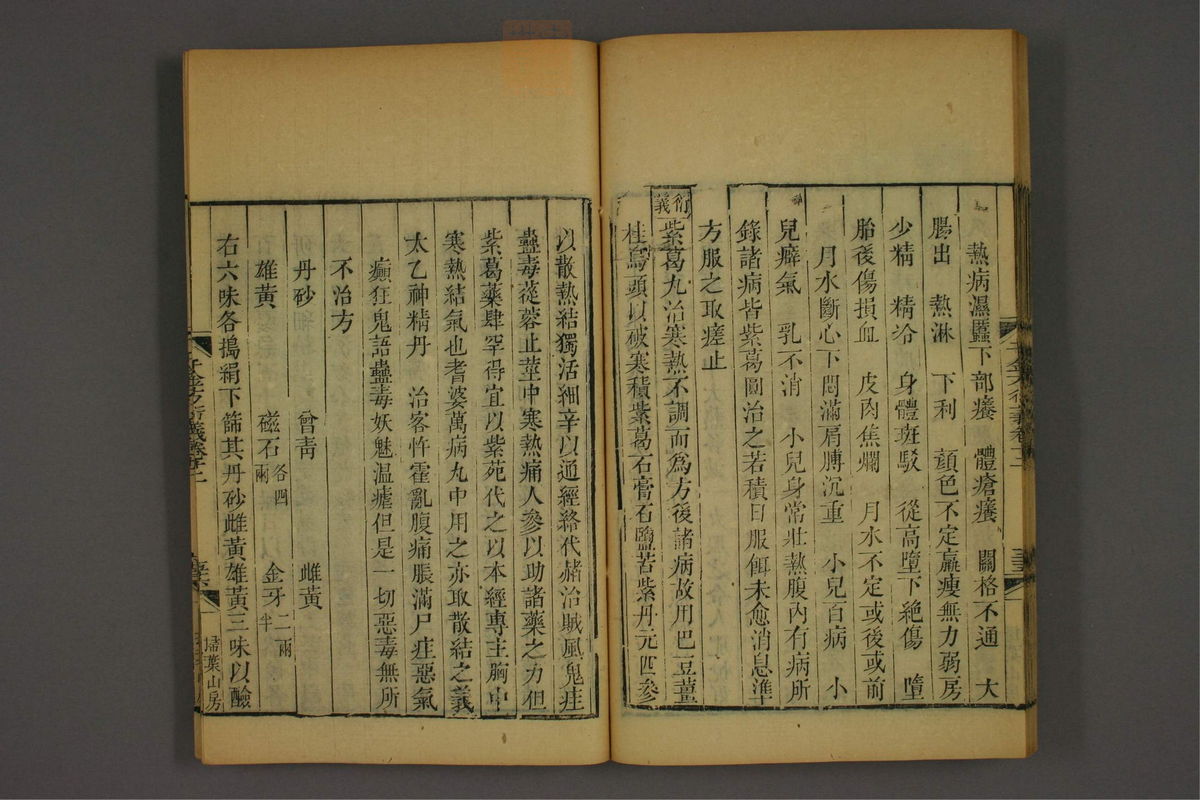 熱病濕䘌下部癢　體瘡癢　關格不通　大
腸出　熱淋　下利　顔色不定羸瘦無力弱房
少精　精冷　身體斑駁　從高墮下絶傷　墮
胎後傷損血　皮肉焦爛　月水不定或後或前
月水斷心下悶滿肩膊沉重　小兒百病　小
兒癖氣　乳不消　小兒身常壯熱腹內有病所
錄諸病皆紫葛圎治之若積日服餌未愈消息準
方服之取瘥止
衍義 紫葛丸治寒熱不調而爲方後諸病故用巴豆薑
桂烏頭以破寒積紫葛石膏石鹽苦紫丹元四參
以散熱結獨活細辛以通經絡代赭治賊風鬼疰
蠱毒蓯蓉止莖中寒熱痛人參以助諸藥之力但
紫葛藥肆罕得宜以紫苑代之以本經專主胸中
寒熱結氣也耆婆萬病丸中用之亦取散結之義
太乙神精丹　治客忤霍亂腹痛脹滿尸疰惡氣
癲狂鬼語蠱毒妖魅温瘧但是一切惡毒無所
不治方
丹砂　曾靑　雌黃
雄黃　磁石各四兩　金牙二兩半
右六味各搗絹下篩其丹砂雌黃雄黃三味以醶
掃葉山房